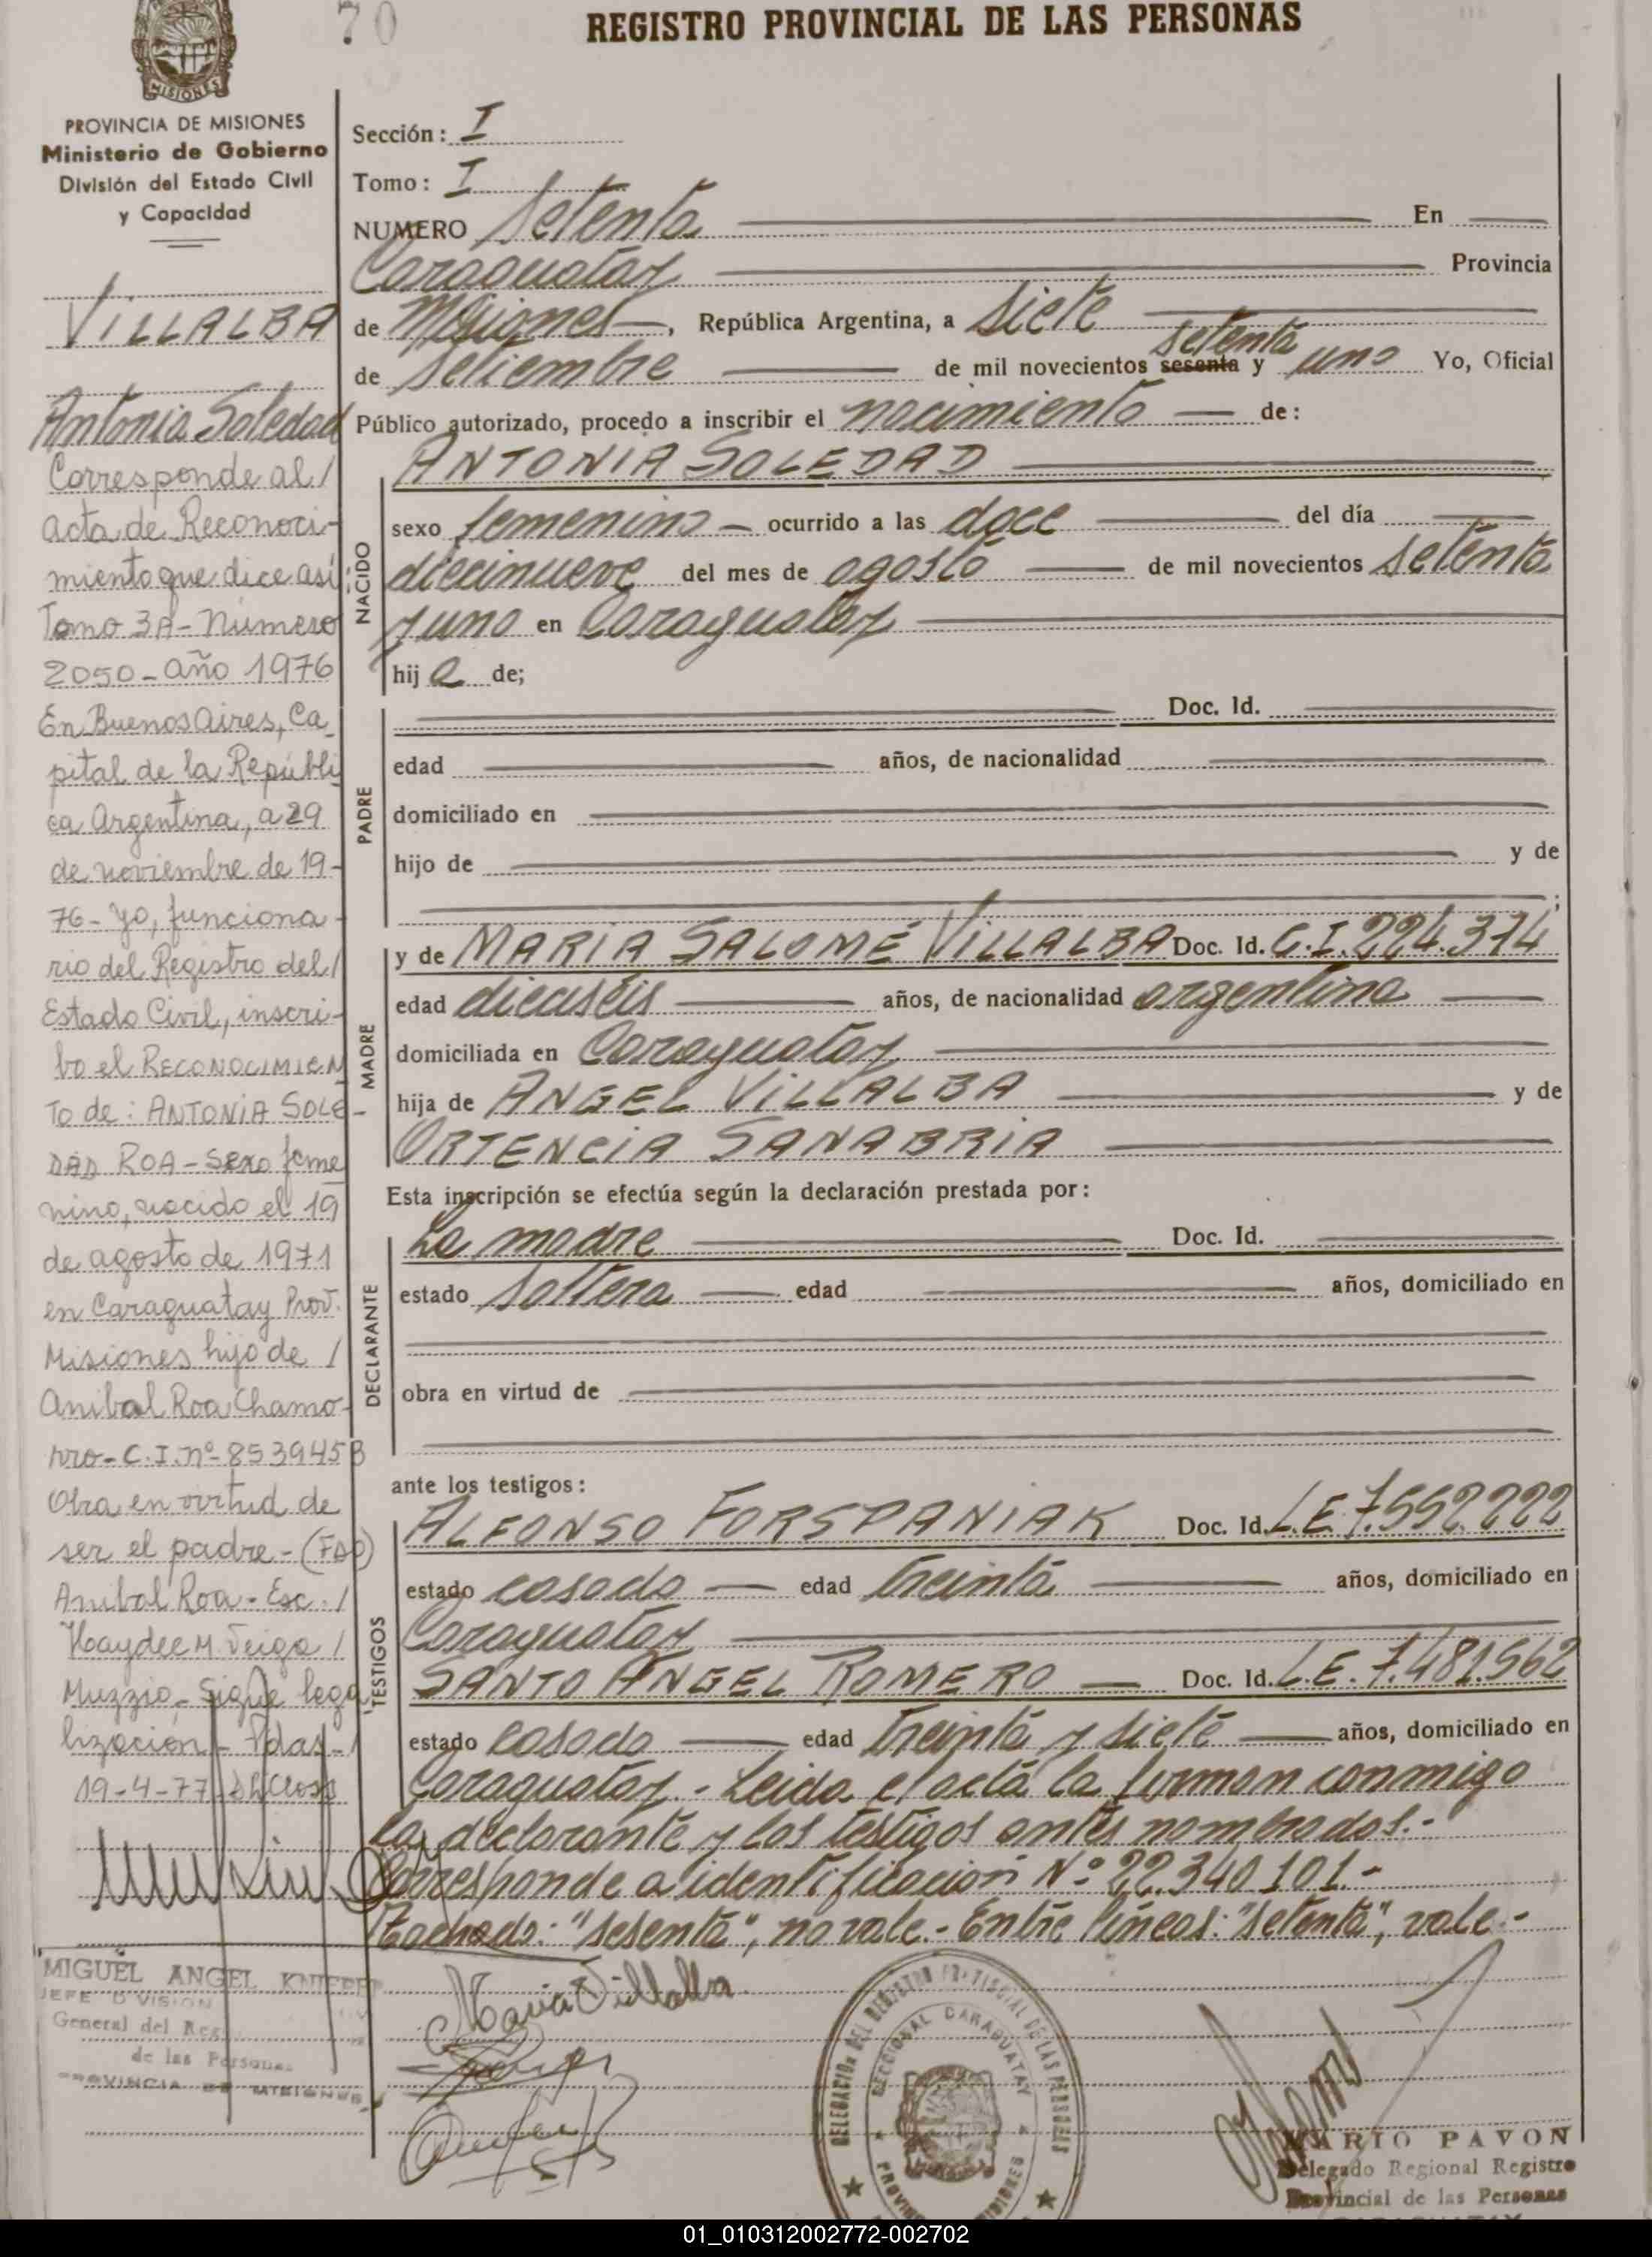 70
REGISTRO PROVINCIAL DE LAS PERSONAS
MISIONES
PROVINCIA DE MISIONES
Ministerio de Gobierno
División del Estado Civil
y Capacidad
VILLALBA
Antonia Soledad
Corresponde al /
acta de Reconoci-
miento que dice así
Tomo 3A - Número
2050 - año 1976
En Buenos Aires, Ca
pital de la Repúbli
ca Argentina, a 29
de noviembre de 19-
76 - Yo, funciona-
rio del Registro del /
Estado Civil, inscri-
bo el RECONOCIMIEN
TO de: ANTONIA SOLE-
DAD ROA - Sexo feme
nino, nacido el 19
de agosto de 1971
en Caraguatay Prov.
Misiones hijo de /
Anibal Roa Chamo-
rro - C.I. nº 8539458
Obra en virtud de
ser el padre - (FDO)
Anibal Roa - Esc. /
Haydee M Veiga /
Muzzio - Sigue lega
lización - Pdas - /
19-4-77
MIGUEL ANGEL
JEFE DIVISION
General del Reg
de las Personas
PROVINCIA DE MISIONES
Sección: I
Tomo: I
NUMERO Setenta En
Caraguatay Provincia
de Misiones, República Argentina, a siete
de setiembre de mil novecientos sesenta setenta y uno Yo, Oficial
Público autorizado, procedo a inscribir el nacimiento de:
NACIDO
ANTONIA SOLEDAD
sexo femenino ocurrido a las doce del día
diecinueve del mes de agosto de mil novecientos setenta
y uno en Caraguatay
hija de;
PADRE
Doc. Id.
edad años, de nacionalidad
domiciliado en
hijo de y de
;
MADRE
y de MARIA SALOMÉ VILLALBA Doc. Id. C.I. 224.374
edad dieciséis años, de nacionalidad argentina
domiciliada en Caraguatay
hija de ANGEL VILLALBA y de
ORTENCIA SANABRIA
Esta inscripción se efectúa según la declaración prestada por:
DECLARANTE
La madre Doc. Id.
estado soltera edad años, domiciliado en
obra en virtud de
ante los testigos:
TESTIGOS
ALFONSO FORSPANIAK Doc. Id. L.E. 7.552.222
estado casado edad treinta años, domiciliado en
Caraguatay
SANTO ANGEL ROMERO Doc. Id. L.E. 7.481.562
estado casado edad treinta y siete años, domiciliado en
Caraguatay.- Leida el acta la firman conmigo
la declarante y los testigos antes nombrados.-
Corresponde a identificación Nº 22.340.101.-
Tachado: "sesenta", no vale.- Entre líneas: "setenta", vale.-
Maria Villalba
DELEGACION DEL REGISTRO PROVINCIAL DE LAS PERSONAS
SECCIONAL CARAGUATAY
MARIO PAVON
Delegado Regional Registro
Provincial de las Personas
01_010312002772-002702